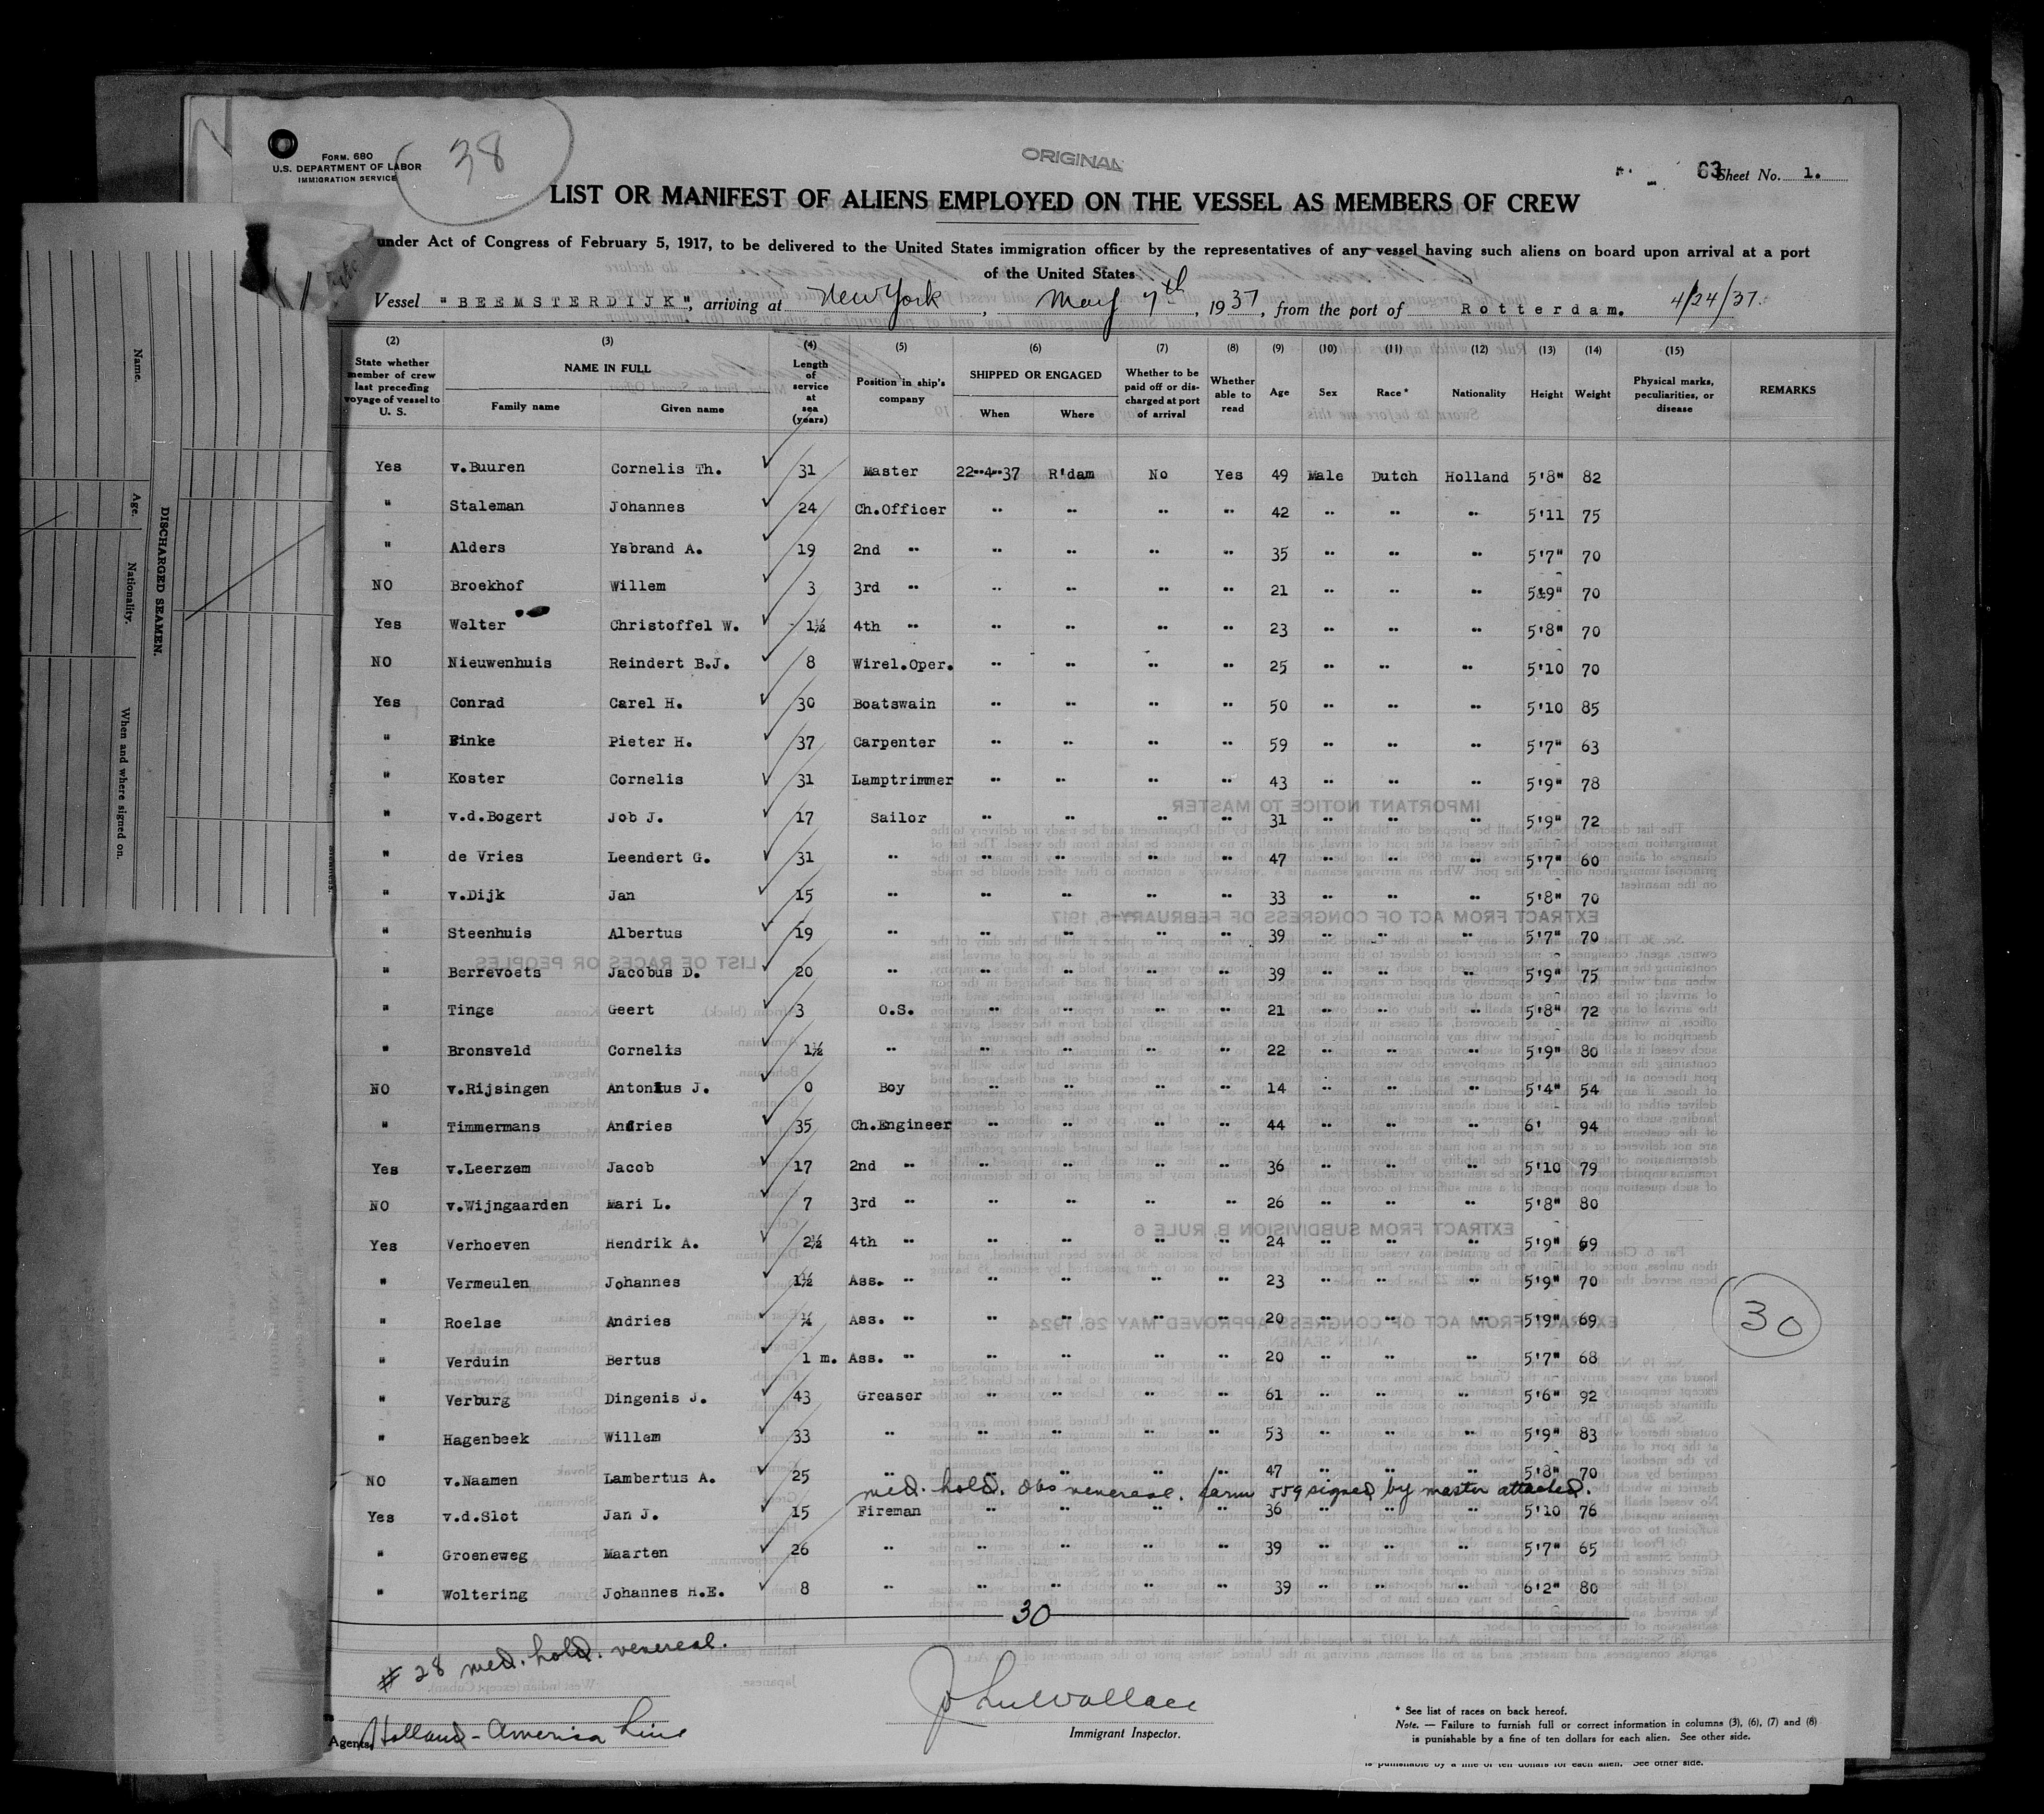 38
FORM. 680
U.S. DEPARTMENT OF LABOR
IMMIGRATION SERVICE
ORIGINAL
63 Sheet No. 1.
LIST OR MANIFEST OF ALIENS EMPLOYED ON THE VESSEL AS MEMBERS OF CREW
under Act of Congress of February 5, 1917, to be delivered to the United States immigration officer by the representatives of any vessel having such aliens on board upon arrival at a port
of the United States
Vessel "BEEMSTERDIJK", arriving at New York, May 7th, 1937, from the port of Rotterdam. 4/24/37.
(2) (3) (4) (5) (6) (7) (8) (9) (10) (11) (12) (13) (14) (15)
State whether member of crew last preceding voyage of vessel to U. S. | NAME IN FULL Family name Given name | Length of service at sea (years) | Position in ship's company | SHIPPED OR ENGAGED When Where | Whether to be paid off or discharged at port of arrival | Whether able to read | Age | Sex | Race* | Nationality | Height | Weight | Physical marks, peculiarities, or disease | REMARKS
Yes v.Buuren Cornelis Th. 31 Master 22-4-37 R'dam No Yes 49 Male Dutch Holland 5'8" 82
" Staleman Johannes 24 Ch.Officer " " " " 42 " " " 5'11 75
" Alders Ysbrand A. 19 2nd " " " " " 35 " " " 5'7" 70
NO Broekhof Willem 3 3rd " " " " " 21 " " " 5'9" 70
Yes Welter Christoffel W. 1½ 4th " " " " " 23 " " " 5'8" 70
NO Nieuwenhuis Reindert B.J. 8 Wirel.Oper. " " " " 25 " " " 5'10 70
Yes Conrad Carel H. 30 Boatswain " " " " 50 " " " 5'10 85
" Finke Pieter H. 37 Carpenter " " " " 59 " " " 5'7" 63
" Koster Cornelis 31 Lamptrimmer " " " " 43 " " " 5'9" 78
" v.d.Bogert Job J. 17 Sailor " " " " 31 " " " 5'9" 72
" de Vries Leendert G. 31 " " " " " 47 " " " 5'7" 60
" v.Dijk Jan 15 " " " " " 33 " " " 5'8" 70
" Steenhuis Albertus 19 " " " " " 39 " " " 5'7" 70
" Berrevoets Jacobus D. 20 " " " " " 39 " " " 5'9" 75
" Tinge Geert 3 O.S. " " " " 21 " " " 5'8" 72
" Bronsveld Cornelis 1½ " " " " " 22 " " " 5'9" 80
NO v.Rijsingen Antonius J. 0 Boy " " " " 14 " " " 5'4" 54
" Timmermans Andries 35 Ch.Engineer " " " " 44 " " " 6' 94
Yes v.Leerzem Jacob 17 2nd " " " " " 36 " " " 5'10 79
NO v.Wijngaarden Mari L. 7 3rd " " " " " 26 " " " 5'8" 80
Yes Verhoeven Hendrik A. 2½ 4th " " " " " 24 " " " 5'9" 69
" Vermeulen Johannes 1½ Ass. " " " " " 23 " " " 5'9" 70
" Roelse Andries Ass. " " " " " 20 " " " 5'9" 69
" Verduin Bertus 1 m. Ass. " " " " " 20 " " " 5'7" 68
" Verburg Dingenis J. 43 Greaser " " " " 61 " " " 5'6" 92
" Hagenbeek Willem 33 " " " " " 53 " " " 5'9" 83
NO v.Naamen Lambertus A. 25 " " " " " 47 " " " 5'8" 70
med. hold. obs venereal. form 559 signed by master attached.
Yes v.d.Slot Jan J. 15 Fireman " " " " 36 " " " 5'10 76
" Groeneweg Maarten 26 " " " " " 39 " " " 5'7" 65
" Woltering Johannes H.E. 8 " " " " " 39 " " " 6'2" 80
30
30
# 28 med. hold. venereal.
Agents Holland-America Line
John Wallace
Immigrant Inspector.
* See list of races on back hereof.
Note. — Failure to furnish full or correct information in columns (3), (6), (7) and (8)
is punishable by a fine of ten dollars for each alien. See other side.
is punishable by a fine of ten dollars for each alien. See other side.
DISCHARGED SEAMEN.
Name.
Age.
Nationality.
When and where signed on.